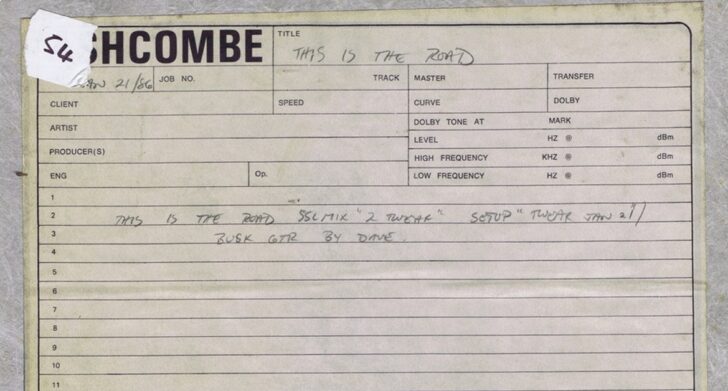 54
SHCOMBE
TITLE
THIS IS THE ROAD
JAN 21/86 JOB NO. TRACK MASTER TRANSFER
CLIENT SPEED CURVE DOLBY
ARTIST DOLBY TONE AT MARK
PRODUCER(S) LEVEL HZ @ dBm
HIGH FREQUENCY KHZ @ dBm
ENG Op. LOW FREQUENCY HZ @ dBm
1
2 THIS IS THE ROAD SSL MIX "2 TWEAR" SETUP "TWEAR JAN 21"/
3 BUSK GTR BY DAVE.
4
5
6
7
8
9
10
11